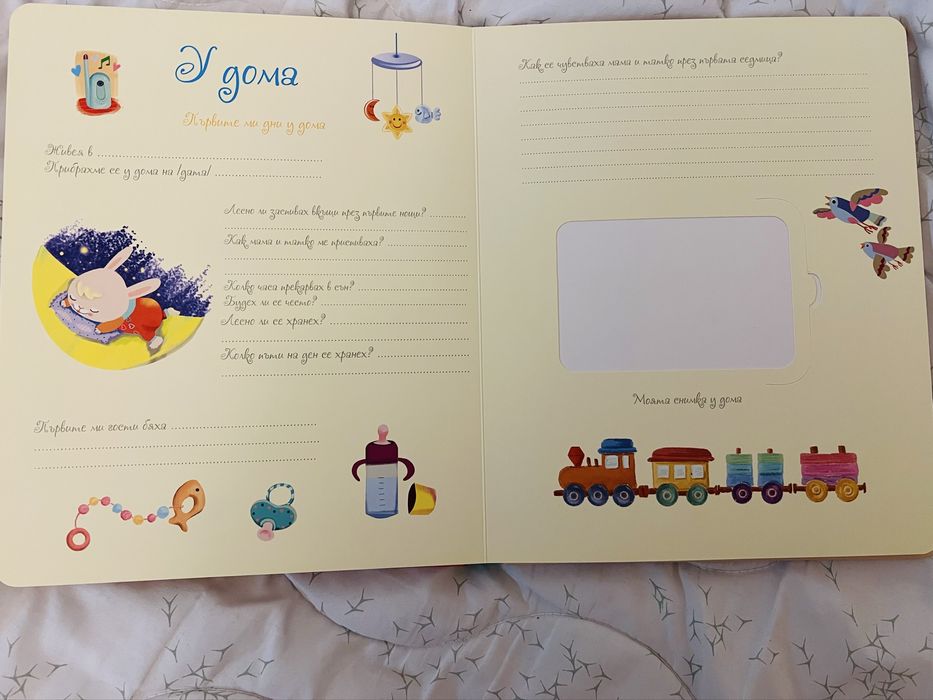 У дома
Първите ми дни у дома
Живея в
Прибрахме се у дома на /дата/
Лесно ли заспивах вкъщи през първите нощи?
Как мама и татко ме приспиваха?
Колко часа прекарвах в сън?
Будех ли се често?
Лесно ли се хранех?
Колко пъти на ден се хранех?
Първите ми гости бяха
Как се чувстваха мама и татко през първата седмица?
Моята снимка у дома